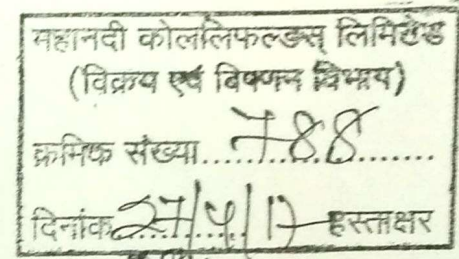 महानदी कोललिफल्डस् लिमिटेड
(विक्रय एवं विपणन विभाग)
क्रमिक संख्या.....788.......
दिनांक 27/4/17 हस्ताक्षर